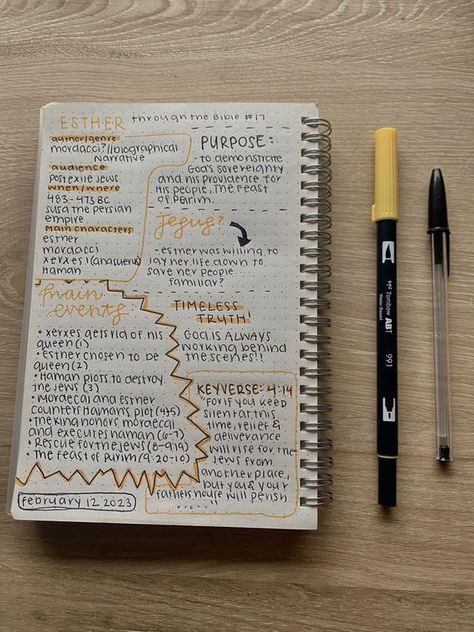 ESTHER through the Bible #17
author/genre
mordacci?//biographical
narrative
audience
postexile jews
when/where
483-473 BC
susa the persian
empire
main characters
esther
mordacci
xerxes I (ahasuerus)
Haman
PURPOSE:
- to demonstrate
God's sovereignty
and his providence for
His people, The feast
of Parim.
Jesus?
- esther was willing to
lay her life down to
save her people.
familiar?
main
events:
• xerxes gets rid of his
queen (1)
• esther chosen to be
queen (2)
• Haman plots to destroy
the Jews (3)
• Mordecai and esther
counters Haman's plot (4+5)
• The king honors mordecai
and executes haman (6-7)
• Rescue for the Jews (8-9:19)
• The feast of Purim (9:20-10)
february 12 2023
TIMELESS
TRUTH!
God is ALWAYS
working behind
the scenes!!
KEYVERSE: 4:14
"for if you keep
silent at this
time, relief &
deliverance
will rise for the
Jews from
another place,
but you & your
fathers house will perish
Tombow ABT
991